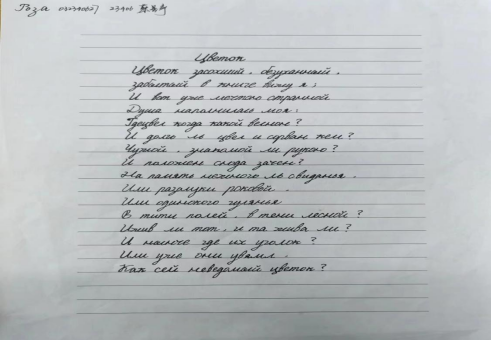 Роза 03234062) 23406
Цветок
Цветок засохший, безуханный,
забытый в книге вижу я;
И вот уже мечтою странной
Душа наполнилась моя:
Где цвёл когда какой весною?
И долго ле цвел и сорван кем?
Чужой, знакомой ли рукою?
И положен сюда зачем?
На память нежного ле свиданья,
Или разлуки роковой,
Или одинокого гулянья
В тиши полей, в тени лесной?
И жив ли тот, и та жива ли?
И нынче где их уголок?
Или уже они увяли,
Как сей неведомый цветок?